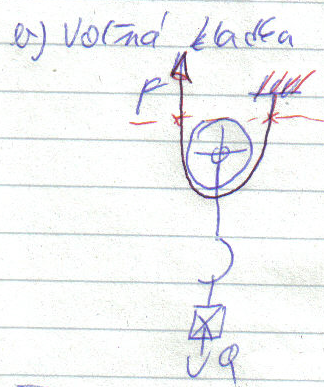 b) Volná kladka
F
Q